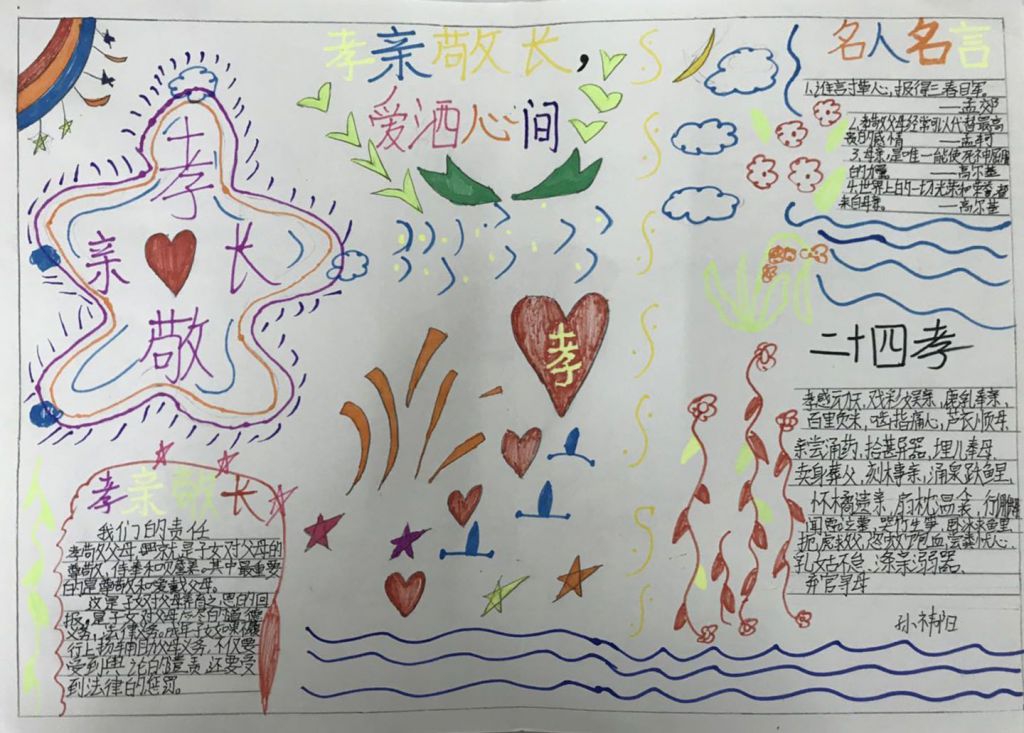 孝亲敬长，
爱洒心间
孝
亲 长
敬
孝
名人名言
1.谁言寸草心，报得三春日军。
——孟郊
2.孝敬父母经常可以代替最高
的感情 ——孟利
3.母亲是唯一能使死神屈服
的力量 ——高尔基
4.世界上的一切光荣和骄傲
来自母亲。 ——高尔基
二十四孝
孝感动天，戏彩娱亲，鹿乳奉亲，
百里负米，啮指痛心，芦衣顺母
亲尝汤药，拾葚异器，埋儿奉母，
卖身葬父，刻木事亲，涌泉跃鲤里，
怀橘遗亲，扇枕温衾，行佣
闻雷泣墓，哭竹生笋，卧冰求鲤
扼虎救父，恣蚊饱血，尝粪忧心
乳姑不怠，涤亲溺器，
弃官寻母
孝亲敬长
我们的责任
孝敬父母，就是子女对父母的
尊敬，侍奉和赡养。其中最重要
的是尊敬和爱戴父母。
这是子女对父母养育之恩的回
报，是子女对父母应尽的道德
义务，法律义务。成年子女
行上扬辅助父母义务，不仅要
受到舆论的谴责，还要受
到法律的惩罚。